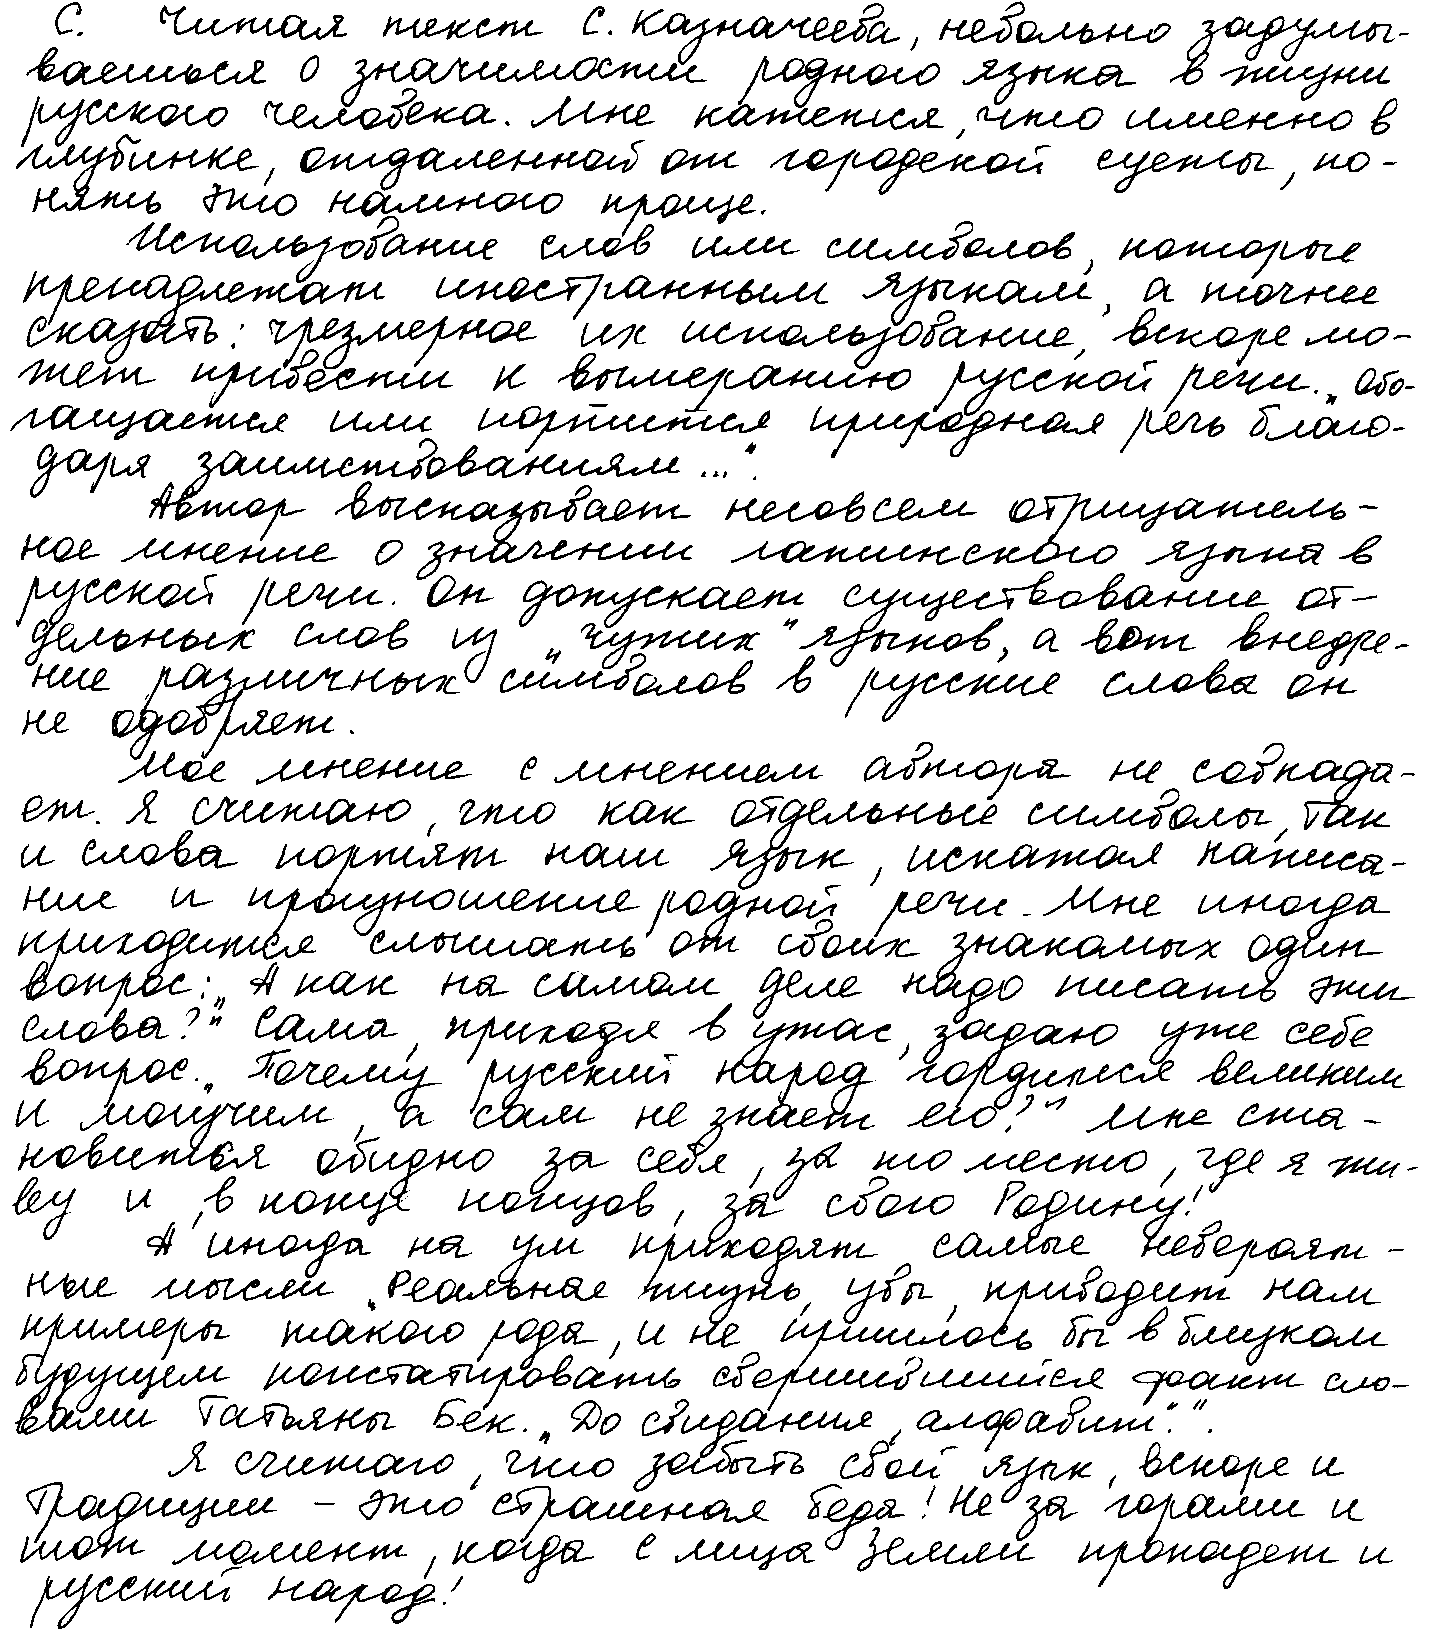 С. Читая текст С. Казначеева, небольно задумы-
ваешься о значимости родного языка в жизни
русского человека. Мне кажется, что именно в
глубинке, отдаленной от городской суеты, по-
нять это намного проще.
Использование слов или символов, которые
пренадлежат иностранным языкам, а точнее
сказать: чрезмерное их использование, вскоре мо-
жет привести к вымеранию русской речи. „Обо-
гащается или портится природная речь благо-
даря заимствованиям..."
Автор высказывает несовсем отрицатель-
ное мнение о значении латинского языка в
русской речи. Он допускает существование от-
дельных слов из „чужих" языков, а вот внедре-
ние различных символов в русские слова он
не одобряет.
Мое мнение с мнением автора не совпада-
ет. Я считаю, что как отдельные символы, так
и слова портят наш язык, искажая написа-
ние и произношение родной речи. Мне иногда
приходится слышать от своих знакомых один
вопрос: „А как на самом деле надо писать эти
слова?" Сама, приходя в ужас, задаю уже себе
вопрос. „Почему русский народ гордится великим
и могучим, а сам не знает его?" Мне ста-
новится обидно за себя, за то место, где я жи-
ву и, в конце концов, за свою Родину!
А иногда на ум приходят самые невероят-
ные мысли „Реальная жизнь, увы, приводит нам
примеры такого рода, и не пришлось бы в близком
будущем констатировать свершившийся факт сло-
вами Татьяны Бек. „До свидания, алфавит"."
Я считаю, что забыть свой язык, вскоре и
традиции - это страшная беда! Не за горами и
тот момент, когда с лица Земли пропадет и
русский народ!